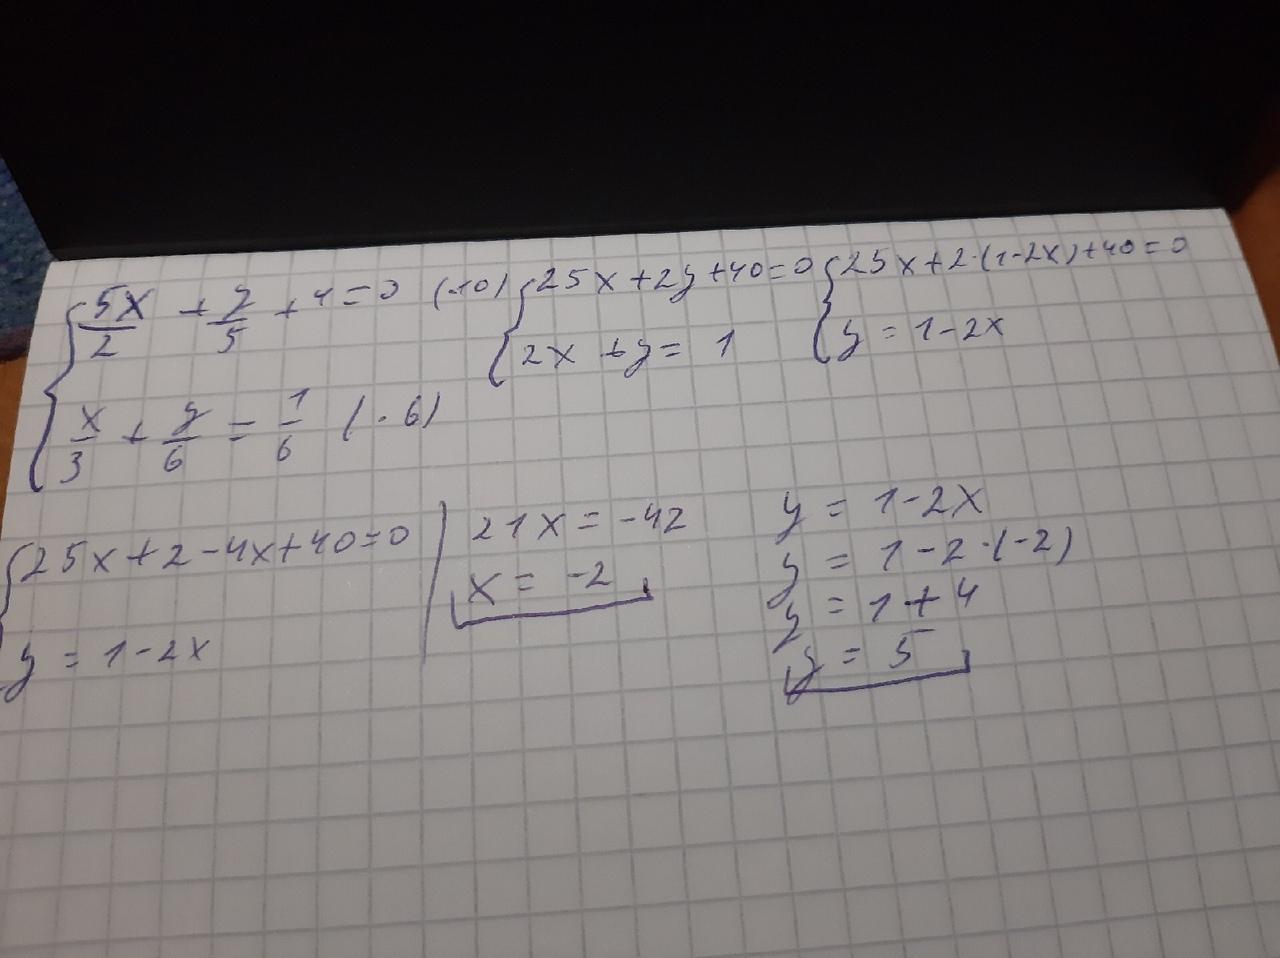 5x/2 + y/5 + 4 = 0 (·10)
x/3 + y/6 = 1/6 (·6)
25x + 2y + 40 = 0
2x + y = 1
25x + 2·(1-2x) + 40 = 0
y = 1-2x
25x + 2 - 4x + 40 = 0
y = 1-2x
21x = -42
x = -2
y = 1-2x
y = 1-2·(-2)
y = 1+4
y = 5